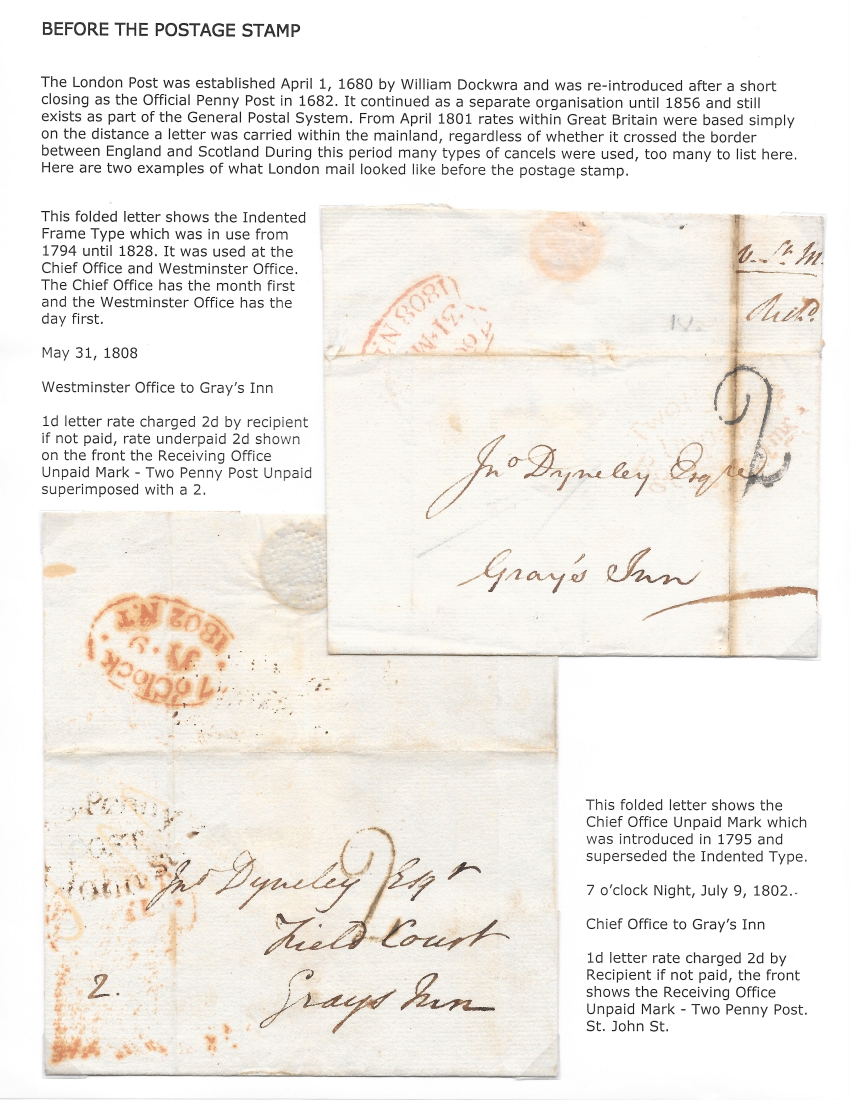 BEFORE THE POSTAGE STAMP
The London Post was established April 1, 1680 by William Dockwra and was re-introduced after a short
closing as the Official Penny Post in 1682. It continued as a separate organisation until 1856 and still
exists as part of the General Postal System. From April 1801 rates within Great Britain were based simply
on the distance a letter was carried within the mainland, regardless of whether it crossed the border
between England and Scotland During this period many types of cancels were used, too many to list here.
Here are two examples of what London mail looked like before the postage stamp.
This folded letter shows the Indented
Frame Type which was in use from
1794 until 1828. It was used at the
Chief Office and Westminster Office.
The Chief Office has the month first
and the Westminster Office has the
day first.
May 31, 1808
Westminster Office to Gray's Inn
1d letter rate charged 2d by recipient
if not paid, rate underpaid 2d shown
on the front the Receiving Office
Unpaid Mark - Two Penny Post Unpaid
superimposed with a 2.
1808
31
2
Jno Dyneley Esqre
Gray's Inn
1802 N.T
9
7 oClock
Penny
Post
John St
2
Jno Dyneley Esqr
Field Court
Grays Inn
2.
This folded letter shows the
Chief Office Unpaid Mark which
was introduced in 1795 and
superseded the Indented Type.
7 o'clock Night, July 9, 1802.-
Chief Office to Gray's Inn
1d letter rate charged 2d by
Recipient if not paid, the front
shows the Receiving Office
Unpaid Mark - Two Penny Post.
St. John St.